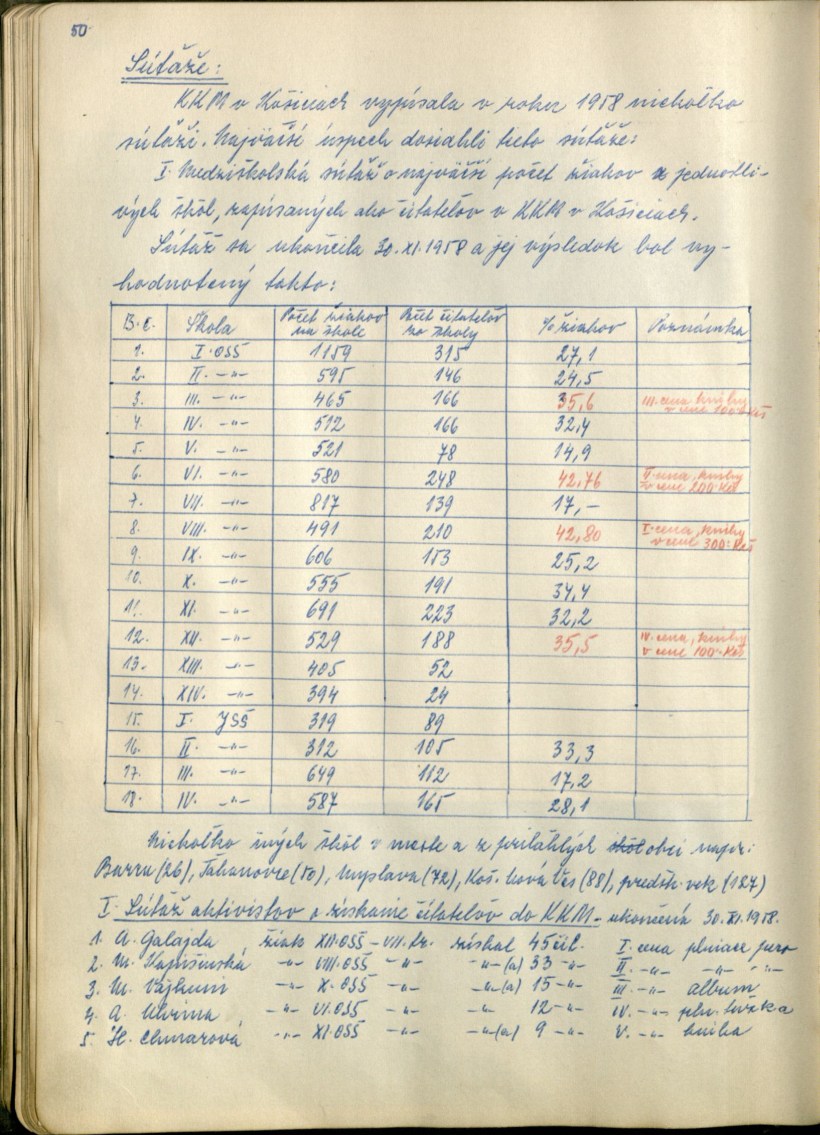 50
Súťaže:
KKM v Košiciach vypísala v roku 1958 niekoľko
súťaží. Najväčší úspech dosiahli tieto súťaže:
I. Medziškolská súťaž o najväčší počet žiakov z jednotli-
vých škôl, zapísaných ako čitateľov v KKM v Košiciach.
Súťaž sa ukončila 30.XI.1958 a jej výsledok bol vy-
hodnotený takto:
B.č. Škola Počet žiakov na škole Počet čitateľov zo školy % žiakov Poznámka
1. I. OSŠ 1159 315 27,1
2. II. -"- 595 146 24,5
3. III. -"- 465 166 35,6 III. cena knihy v cene 100.- Kčs
4. IV. -"- 512 166 32,4
5. V. -"- 521 78 14,9
6. VI. -"- 580 248 42,76 II. cena, knihy v cene 200.- Kčs
7. VII. -"- 817 139 17,-
8. VIII. -"- 491 210 42,80 I. cena, knihy v cene 300.- Kčs
9. IX. -"- 606 153 25,2
10. X. -"- 555 191 34,4
11. XI. -"- 691 223 32,2
12. XII. -"- 529 188 35,5 IV. cena, knihy v cene 100.- Kčs
13. XIII. -"- 405 52
14. XIV. -"- 394 24
15. I. JSŠ 319 89
16. II. -"- 312 105 33,3
17. III. -"- 649 112 17,2
18. IV. -"- 587 165 28,1
Niekoľko iných škôl v meste a z priľahlých škôl obcí napr.:
Barca (26), Ťahanovce (50), Myslava (72), Koš. Nová Ves (88), predšk. vek (127)
I. Súťaž aktivistov o získanie čitateľov do KKM - ukončená 30.XI.1958.
1. A. Galajda žiak XII.OSŠ - VII. tr. získal 45 čit. I. cena plniace pero
2. M. -"- VIII.OSŠ -"- -"-(a) 33 -"- II. -"- -"- -"-
3. M. -"- X.OSŠ -"- -"-(a) 15 -"- III. -"- album
4. A. -"- VI.OSŠ -"- -"- 12 -"- IV. -"- pln. tužka
5. H. Chmarová -"- XI.OSŠ -"- -"-(a) 9 -"- V. -"- kniha